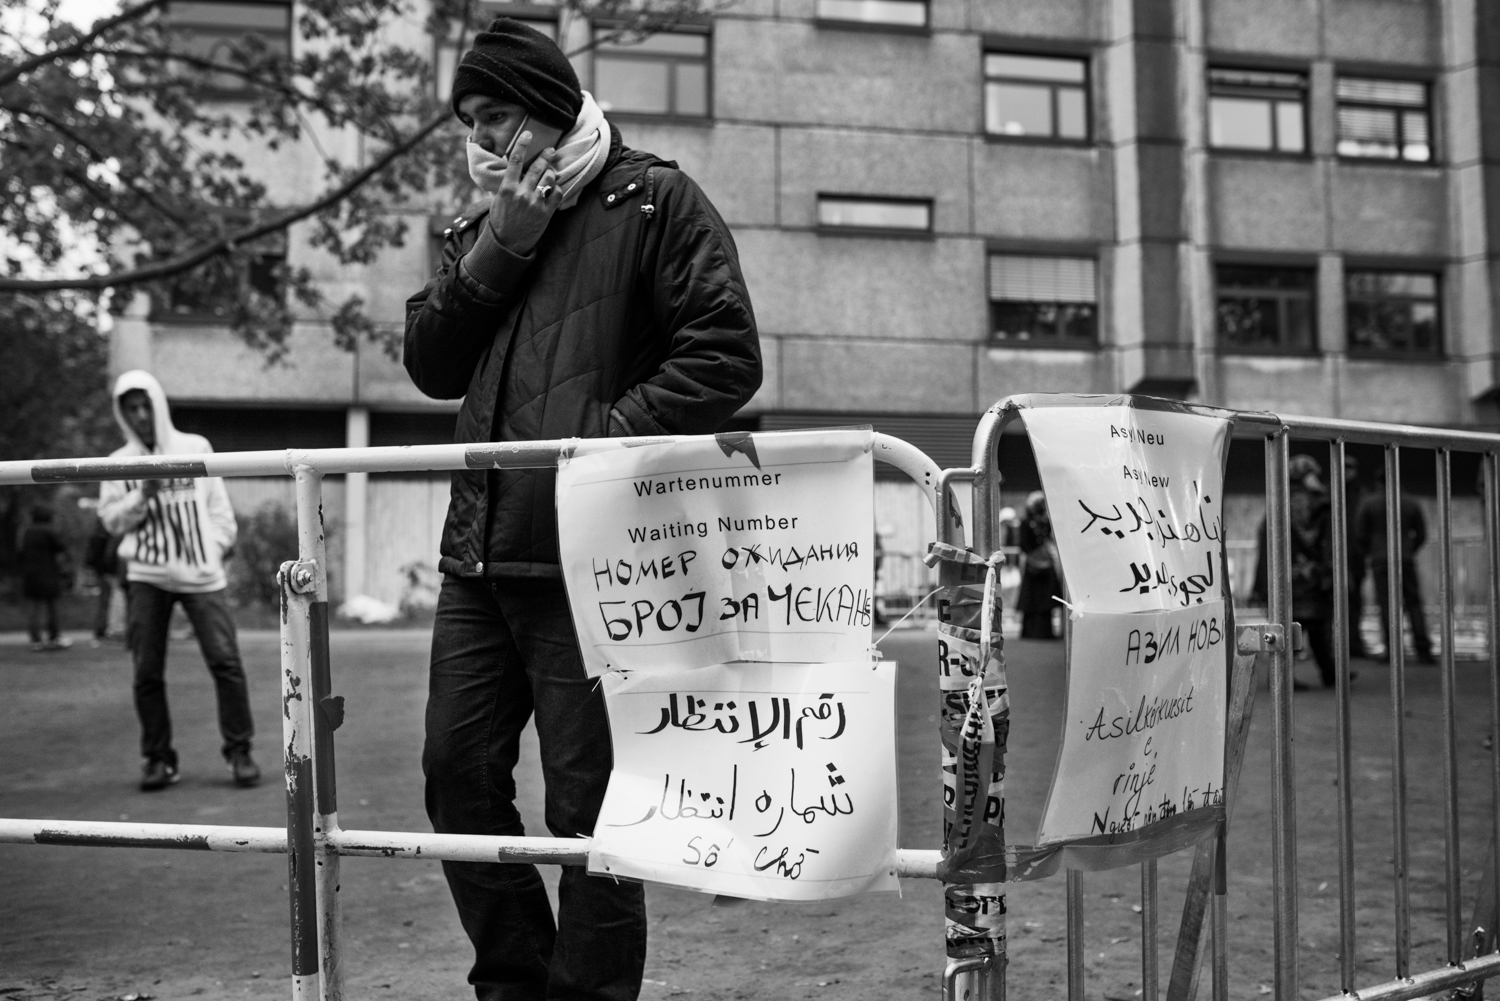 Wartenummer
Waiting Number
НОМЕР ОЖИДАНИЯ
БРОЈ ЗА ЧЕКАЊЕ
رقم الإنتظار
شماره انتظار
Số chờ
Asyl Neu
Asyl New
پناهنده جدید
لجوء جديد
АЗИЛ НОВИ
Asilkërkuesit
e
rinjë
Người